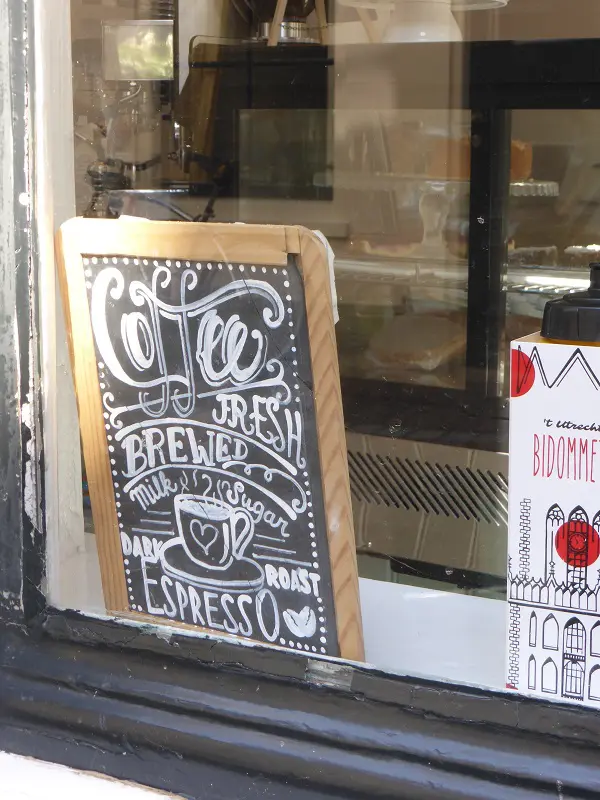 Coffee
FRESH
BREWED
Milk Sugar
DARK
ROAST
ESPRESSO
't Utrecht
BIDOMME